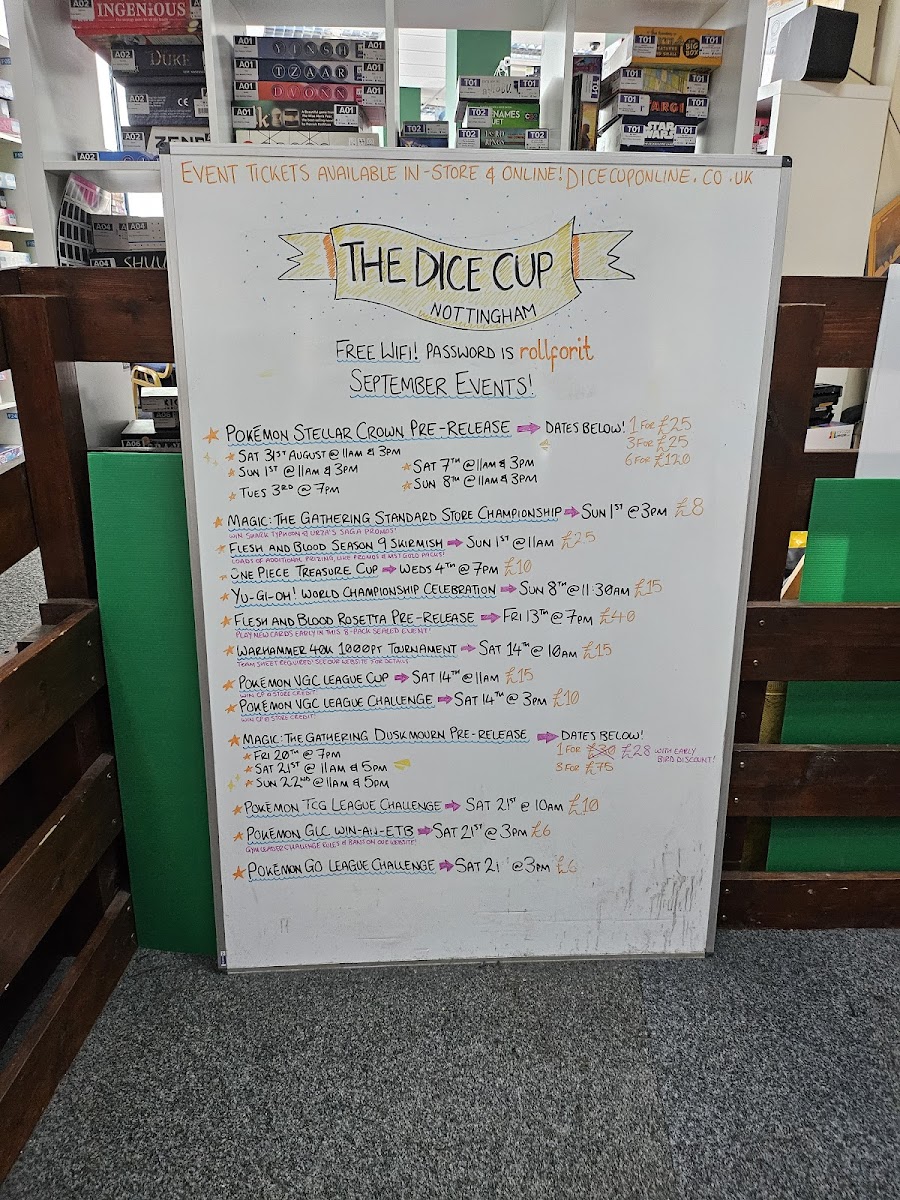 INGENIOUS
A02
A02
DUKE
A02
A02
YINSH
A01
A01
TZAAR
A01
A01
DVONN
A01
A01
A01
A01
T02
T02
T02
T02
T01
T01
BIG BOX
T01
T01
T01
T01
T01
STAR WARS
T01
A04
A04
A04
EVENT TICKETS AVAILABLE IN-STORE & ONLINE! DICECUPONLINE.CO.UK
THE DICE CUP
NOTTINGHAM
FREE WIFI! PASSWORD IS rollforit
SEPTEMBER EVENTS!
POKÉMON STELLAR CROWN PRE-RELEASE → DATES BELOW! 1 FOR £25
3 FOR £25
6 FOR £120
SAT 31ST AUGUST @ 11AM & 3PM
SUN 1ST @ 11AM & 3PM
SAT 7TH @ 11AM & 3PM
TUES 3RD @ 7PM
SUN 8TH @ 11AM & 3PM
MAGIC: THE GATHERING STANDARD STORE CHAMPIONSHIP → SUN 1ST @ 3PM £8
WIN SHARK TYPHOON & URZA'S SAGA PROMOS!
FLESH AND BLOOD SEASON 9 SKIRMISH → SUN 1ST @ 11AM £25
LOADS OF ADDITIONAL PRIZING, LIKE PROMOS & MST GOLD PACKS!
ONE PIECE TREASURE CUP → WEDS 4TH @ 7PM £10
YU-GI-OH! WORLD CHAMPIONSHIP CELEBRATION → SUN 8TH @ 11:30AM £15
FLESH AND BLOOD ROSETTA PRE-RELEASE → FRI 13TH @ 7PM £40
PLAY NEW CARDS EARLY IN THIS 8-PACK SEALED EVENT!
WARHAMMER 40K 1000PT TOURNAMENT → SAT 14TH @ 10AM £15
TEAM SHEET REQUIRED! SEE OUR WEBSITE FOR DETAILS
POKÉMON VGC LEAGUE CUP → SAT 14TH @ 11AM £15
WIN CP & STORE CREDIT!
POKÉMON VGC LEAGUE CHALLENGE → SAT 14TH @ 3PM £10
WIN CP & STORE CREDIT!
MAGIC: THE GATHERING DUSKMOURN PRE-RELEASE → DATES BELOW!
1 FOR £30 £28 WITH EARLY BIRD DISCOUNT!
3 FOR £75
FRI 20TH @ 7PM
SAT 21ST @ 11AM & 5PM
SUN 22ND @ 11AM & 5PM
POKÉMON TCG LEAGUE CHALLENGE → SAT 21ST @ 10AM £10
POKÉMON GLC WIN-AN-ETB → SAT 21ST @ 3PM £6
GYM LEADER CHALLENGE RULES & BANS ON OUR WEBSITE!
POKÉMON GO LEAGUE CHALLENGE → SAT 21 @ 3PM £6